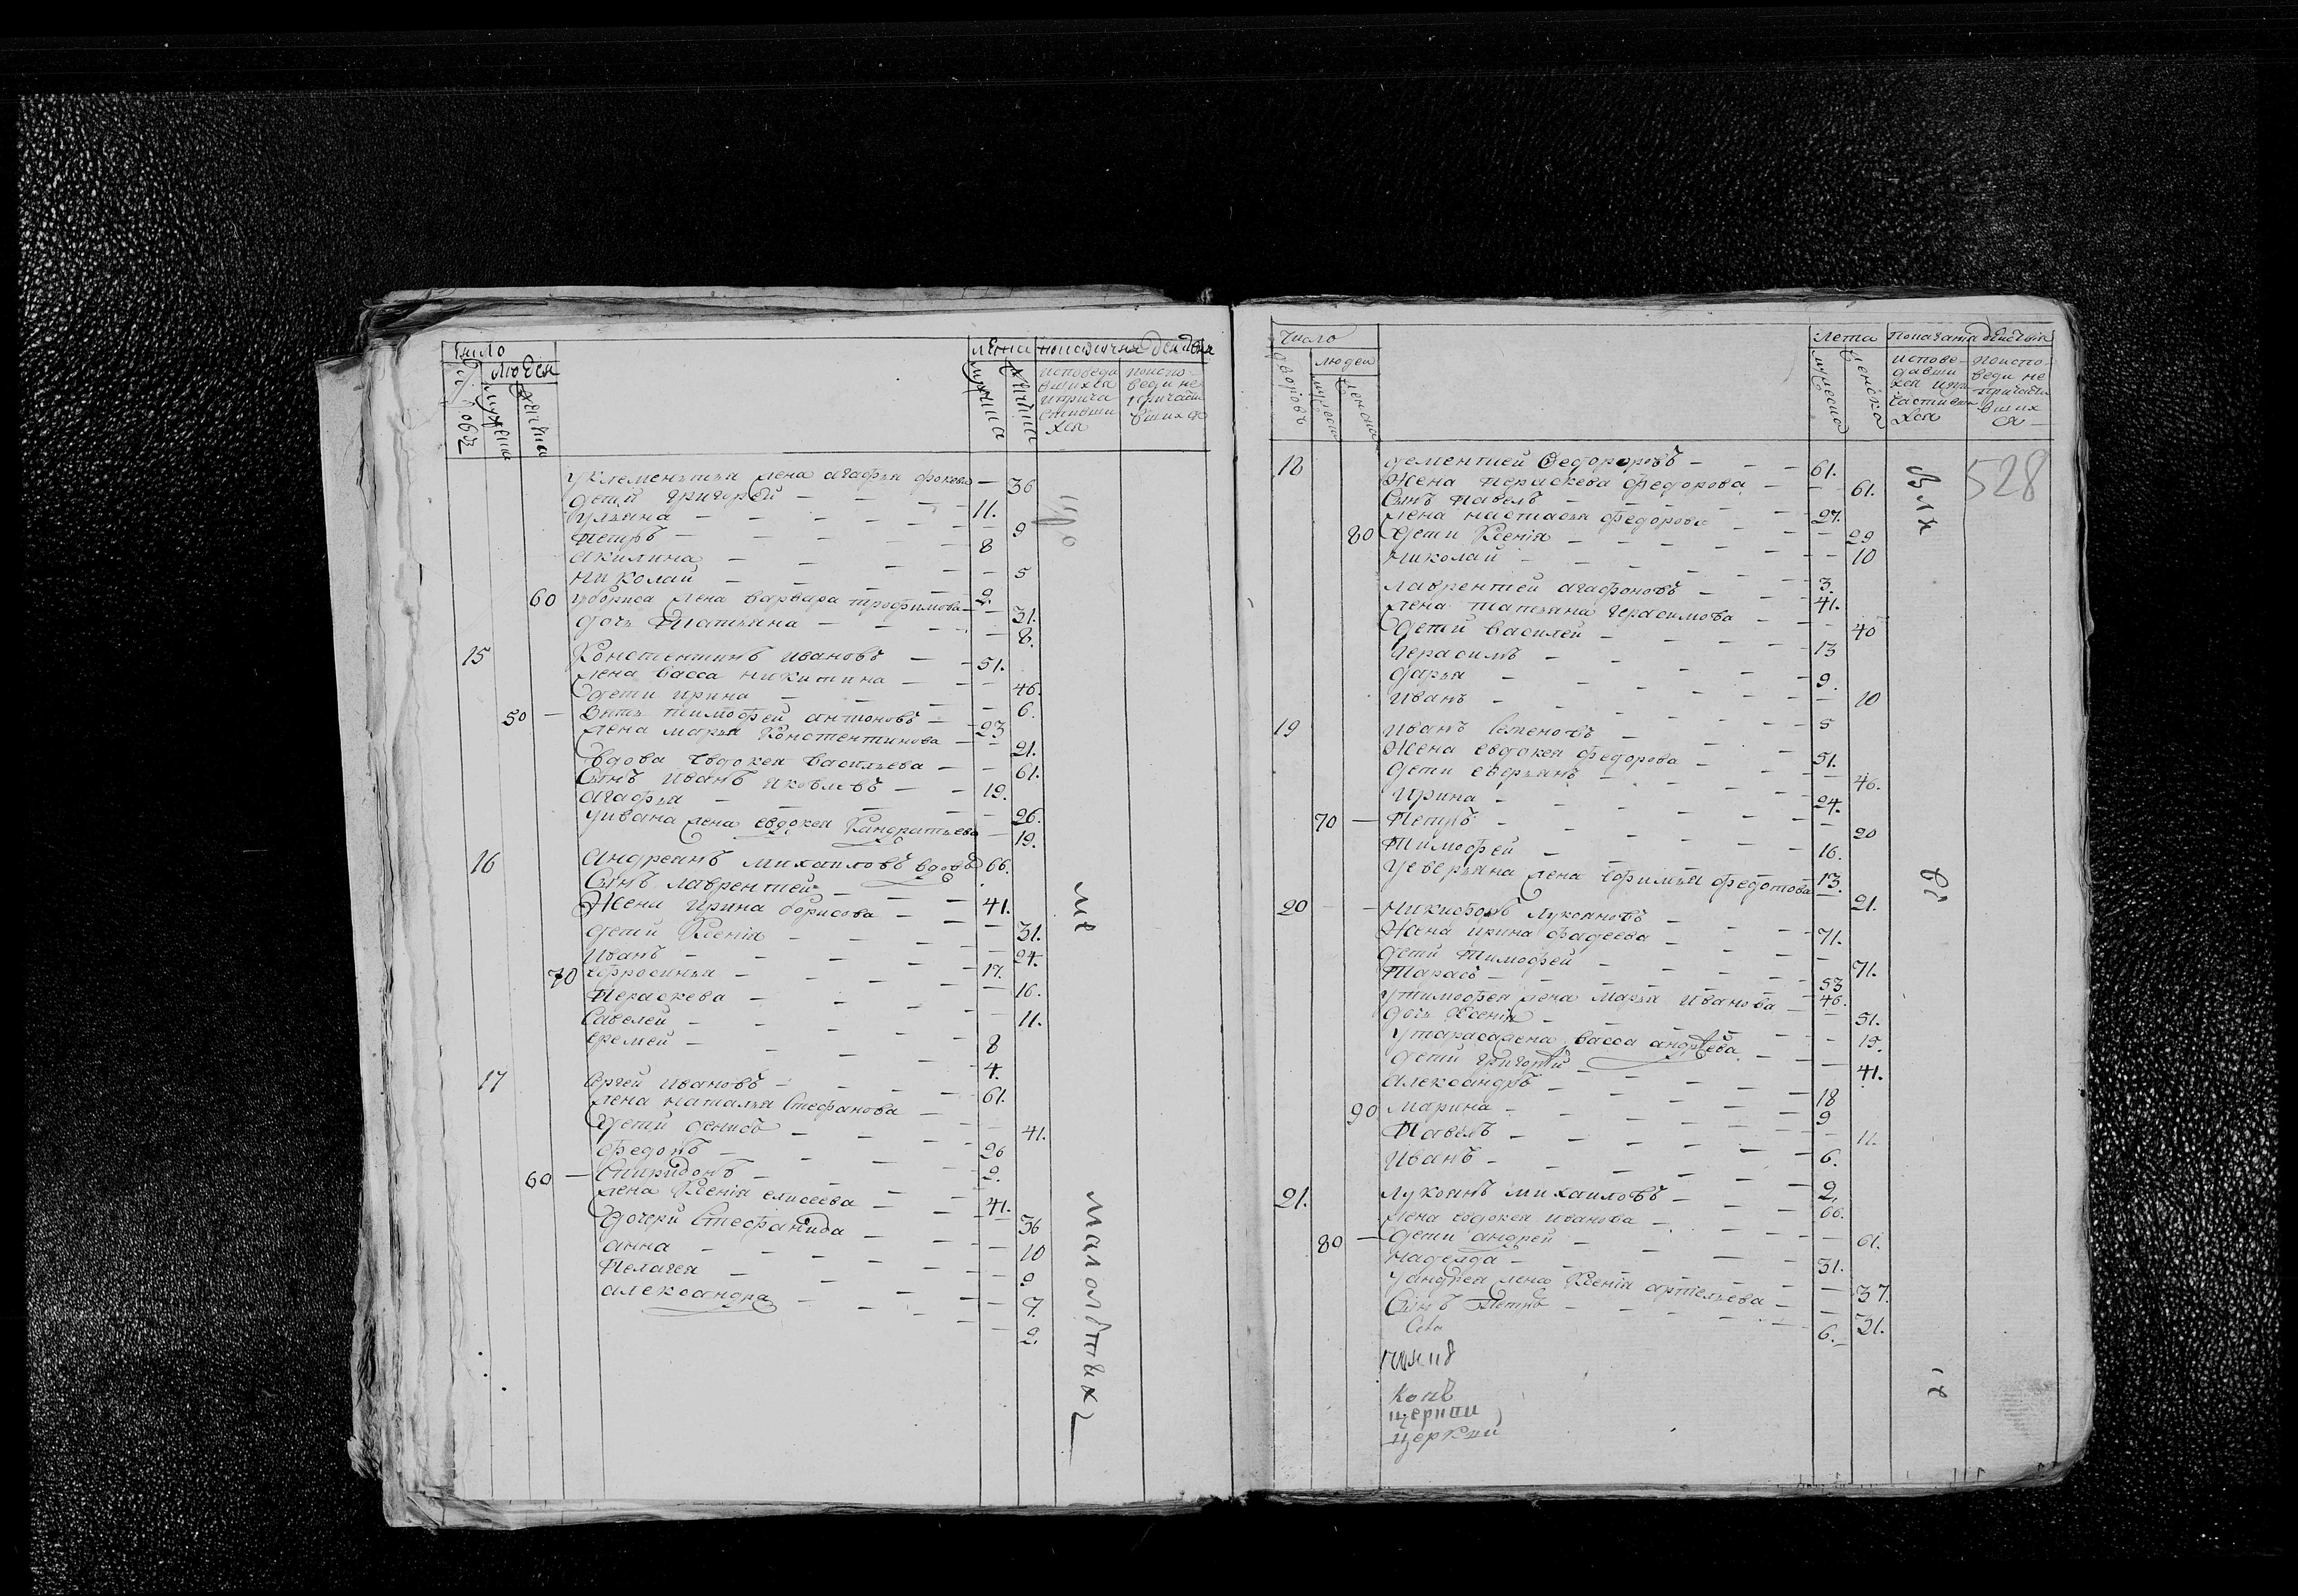 Число
людей
лета
показание действа
исповеда
вшихся
и прича
стивши
хся
по испо-
веди не
причасти
вшихся
У Клементья жена агафья фокова — 36
дети григорей — 11.
Ульяна — 9
Петръ — 8
акилина — 5
Николай — 2.
60 У бориса жена варвара трофимова — 31.
дочь Татьяна — 8.
15 Констентинъ ивановъ — 51.
жена васса никитина — 46.
дети ирина — 6.
50 — Зять тимофей антоновъ — 23
жена марья Констентинова — 21.
вдова Евдокея васильева — 61.
Сынъ иванъ яковлевъ — 19.
агафья — 26.
У ивана жена евдокея Кандратьева — 19.
16 Андреанъ михаиловъ вдовъ 66.
Сынъ лаврентией — 41.
Жена ирина борисова — 31.
дети Ксенія — 24.
иванъ — 17.
70 Ефросинья — 16.
Параскева — 11.
Савелей — 8
еремей — 4.
17 Сергей ивановъ — 61.
жена наталья Стефанова — 41.
дети денисъ — 26
федотъ — 2.
60 — Спиридонъ — 41.
жена Ксенія елисеева — 36
дочери Стефанида — 10
анна — 9
Пелагея — 7.
александра — 2.
малолѣтных
Число
дворовъ
людей
мужеска
женска
Лета
мужеска
женска
показание действия
испове-
давши
хся и при
частивши
хся
по испо-
веди не
причасти
вших
ся —
528
18 дементией Федоровъ — 61.
Жена Параскева Федорова — 61.
Сынъ павелъ — 27.
жена настасья федорова — 29
80 дети Ксенія — 10
николай — 3.
лаврентей агафоновъ — 41.
жена татьяна герасимова — 40
дети василей — 13
герасимъ — 9.
дарья — 10
иванъ — 5
19 иванъ Семеновъ — 51.
Жена евдокея федорова — 46.
дети аверьянъ — 24.
ирина — 20
70 — Петръ — 16.
Тимофей — 13.
У аверьяна жена Ефимья федотова 21.
20 — никифоръ лукоановъ — 71.
Жена ирина фадеева — 71.
дети тимофей — 53
Тарасъ — 46.
У тимофея жена Марья иванова — 51.
дочь Ксенія — 15.
У тараса жена васса андреева — 41.
дети григорей — 18
александръ — 9
90 марина — 11.
Павелъ — 6.
иванъ — 2.
21. лукоанъ михаиловъ — 66.
жена евдокея иванова — 61.
80 — дети андрей — 31.
надежда — 37.
У андрея жена Ксенія артемьева — 21.
Сынъ Петръ — 6.
Села
Церкви